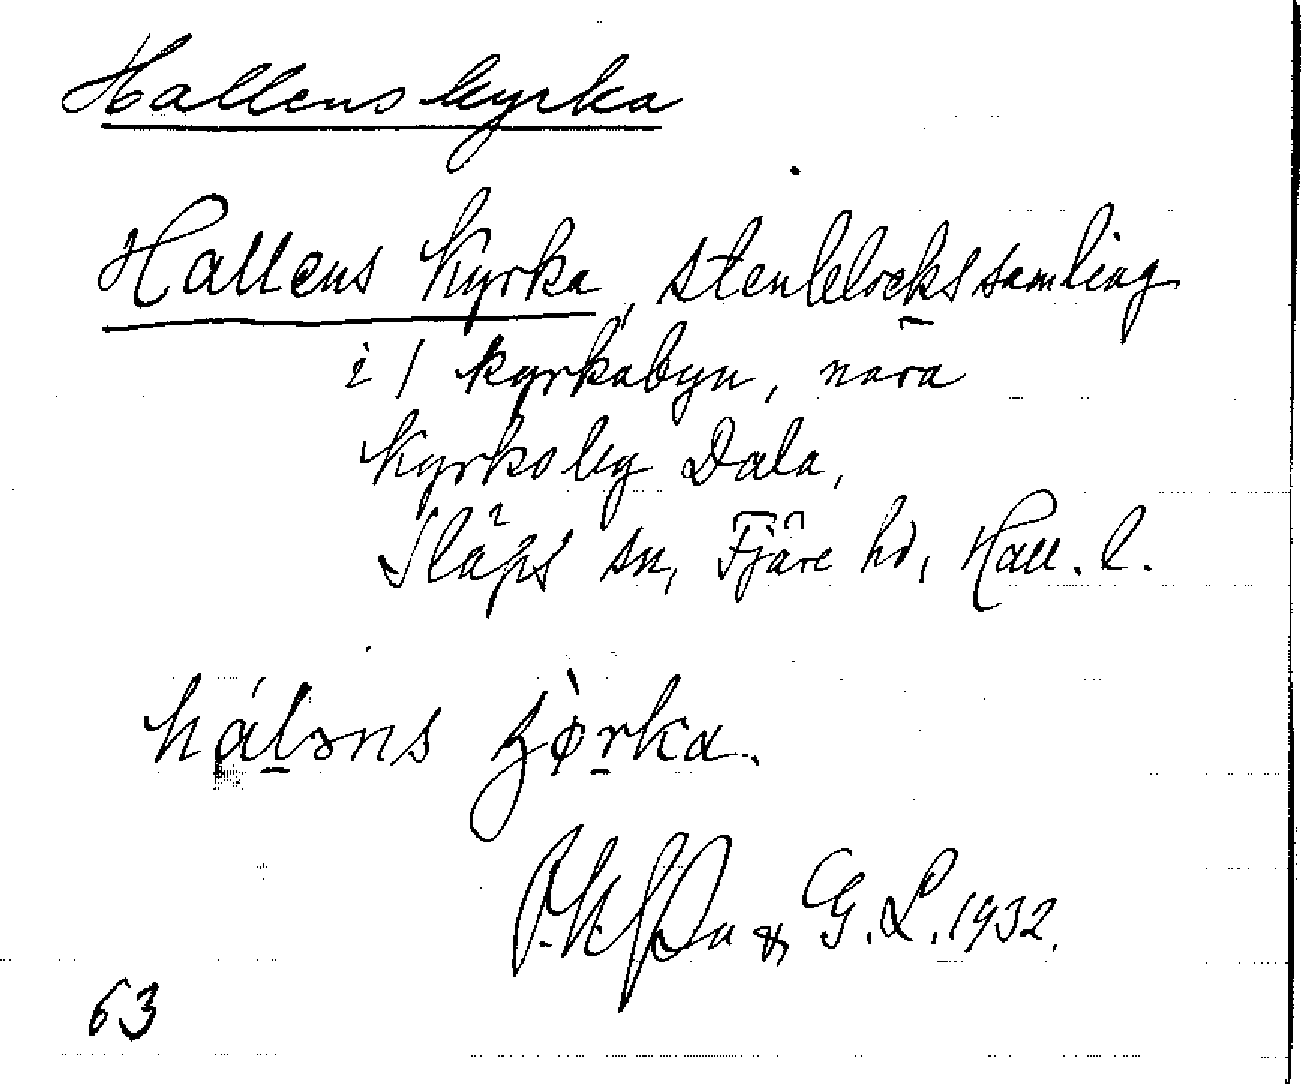 Hallens kyrka
Hallens kyrka, stenblockssamling
i / kyrkabyn, nära
kyrkoby Dala,
Släps sn, Fjäre hd, Hall. l.
hálǝns
& G. L. 1932.
63